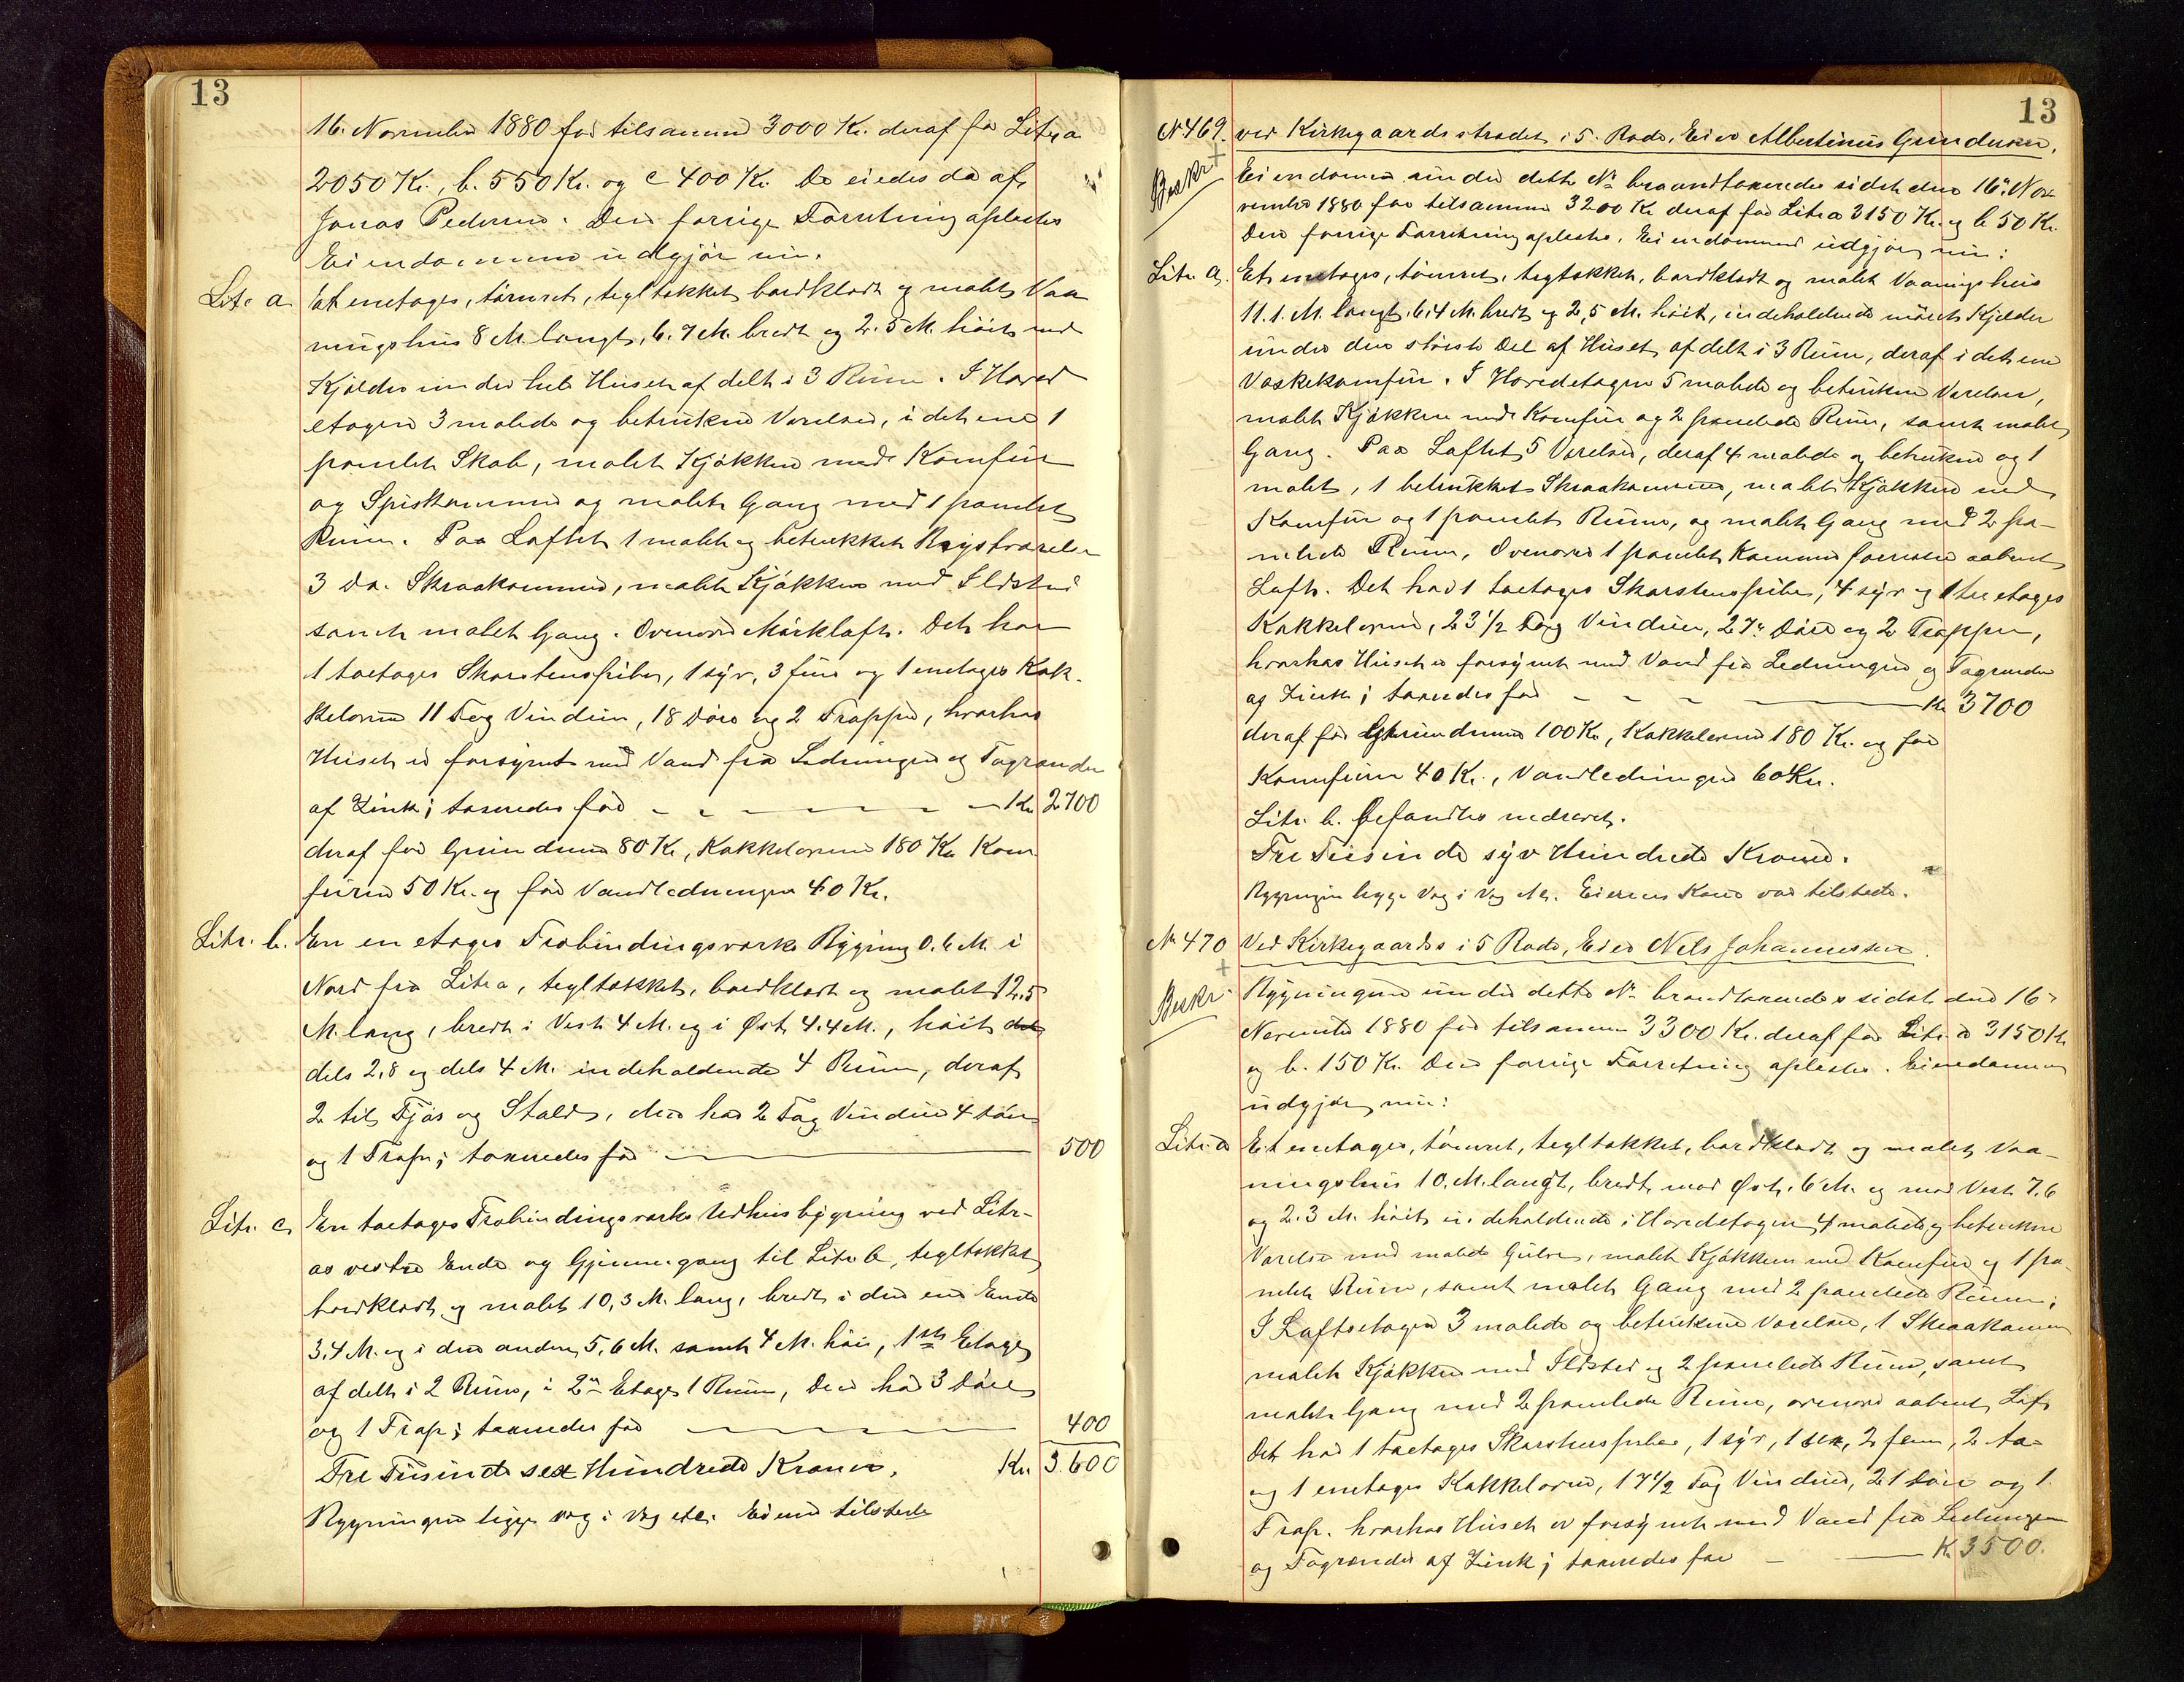 13
16. November 1880 for tilsammen 3000 Kr. deraf for Litr. a
2050 Kr., b. 550 Kr. og c 400 Kr. De eiedes da af
Jonas Pedersen. Den forrige Forretning oplæstes
Eiendommen udgjør nu.
Litr. a. Et enetages, tømret, tegltækket bordklædt og malet Vaa
ningshus 8 M. langt, 6.7 M. bredt og 2.5 M. høit med
Kjælder under hele Huset afdelt i 3 Rum. I Hoved
etagen 3 malede og betrukne Værelser, i det ene 1
panelet Skab, malet Kjøkken med Komfur
og Spiskammer og malet Gang med 1 panelet
Rum. Paa Loftet 1 malet og betrukket Kvistværelse
3 Do. Skraakammer, malet Kjøkken med Ildsted
samt malet Gang. Ovenover Mørkloft. Det har
1 toetages Skorstenspibe, 1 syv, 3 fire og 1 enetages Kak-
kelovne 11 Fag Vinduer, 18 Døre og 2 Trapper, hvorhos
Huset er forsynet med Vand fra Ledningen og Tagrender
af Zink; taxeredes for Kr. 2700
deraf for Grunden 80 Kr., Kakkelovnene 180 Kr. Kom
furen 50 Kr. og for Vandledningen 40 Kr.
Litr. b. En en etages Træbindingsværks Bygning 0.6 M. i
Nord fra Litr. a, tegltækket, bordklædt og malet 12,5
M. lang, bredt i Vest 4 M. og i Øst 4.4 M., høit
dels 2,8 og dels 4 M. indeholdende 4 Rum, deraf
2 til Fjøs og Stald, den har 2 Fag Vinduer 4 Døre
og 1 Trap; taxeredes for 500
Litr. c En toetages Træbindingsværks Udhusbygning ved Litr.
as vestre Ende og Gjennemgang til Litr. b, tegltækket
bordklædt og malet 10,3 M. lang, bredt i den ene Ende
3,4 M. og i den anden 5,6 M. samt 4 M. høi, 1ste Etage
afdelt i 2 Rum, i 2den Etage 1 Rum, den har 3 Døre
og 1 Trap; taxeredes for 400
Tre Tusinde sex Hundrede Kroner. Kr. 3.600
Bygningen ligge Væg i Væg etc. Eieren tilstede
13
No 469. ved Kirkegaardsstrædet i 5. Rode, Eier Albertinius Gundersen.
Beskr. Eiendommen under dette No brandtaxeredes sidst den 16de No-
vember 1880 for tilsammen 3200 Kr. deraf for Litr. a 3150 Kr. og b 50 Kr.
Den forrige Forretning oplæstes. Eiendommen udgjør nu:
Litr. a. Et enetages, tømret, tegltækket, bordklædt og malet Vaaningshus
11.1. M. langt, 6.4 M. bredt og 2,5 M. høit, indeholdende muret Kjelder
under den største Del af Huset afdelt i 3 Rum, deraf i det ene
Vaskekomfur. I Hovedetagen 5 malede og betrukne Værelser,
malet Kjøkken med Komfur og 2 panelede Rum, samt malet
Gang. Paa Loftet 5 Værelser, deraf 4 malede og betrukne og 1
malet, 1 betrukket Skraakammer, malet Kjøkken med
Komfur og 1 panelet Rum, og malet Gang med 2 pa-
nelede Rum, Ovenover 1 panelet Kammer forresten aabent
Loft. Det har 1 toetages Skorstenspibe, 4 syv og 1 tre etages
Kakkelovne, 23 1/2 Fag Vinduer, 27 Døre og 2 Trapper,
hvorhos Huset er forsynet med Vand fra Ledningen og Tagrender
af Zink; taxeredes for Kr. 3700
deraf for Grunden 100 Kr., Kakkelovne 180 Kr. og for
Komfuren 40 Kr., Vandledningen 60 Kr.
Litr. b. befandtes nedrevet.
Tre Tusinde syv Hundrede Kroner.
Bygningen ligge Væg i Væg etc. Eierens Kone var tilstede.
No 470 Ved Kirkegaarden i 5 Rode, Eier Nels Johannessen.
Beskr. Bygningerne under dette No brandtaxeredes sidst den 16de
November 1880 for tilsammen 3300 Kr. deraf for Litr. a 3150 Kr.
og b. 150 Kr. Den forrige Forretning oplæstes. Eiendommen
udgjør nu:
Litr. a Et enetages, tømret, tegltækket, bordklædt og malet Vaa-
ningshus 10. M. langt, bredt mod Øst. 6 M. og mod Vest 7.6
og 2.3 M. høit indeholdende i Hovedetagen 4 malede og betrukne
Værelser med malede Gulve, malet Kjøkken med Komfur og 1 pa-
nelet Rum, samt malet Gang med 2 panelede Rum;
I Loftsetagen 3 malede og betrukne Værelser, 1 Skraakammer
malet Kjøkken med Ildsted og 2 panelede Rum, samt
malet Gang med 2 panelede Rum, ovenover aabent Loft
Det har 1 toetages Skorstenspibe, 1 syv, 1 sex, 2 fem, 2 to-
og 1 enetages Kakkelovne, 17 1/2 Fag Vinduer, 21 Døre og 1
Trap. hvorhos Huset er forsynet med Vand fra Ledningen
og Tagrender af Zink; taxeredes for Kr. 3500.